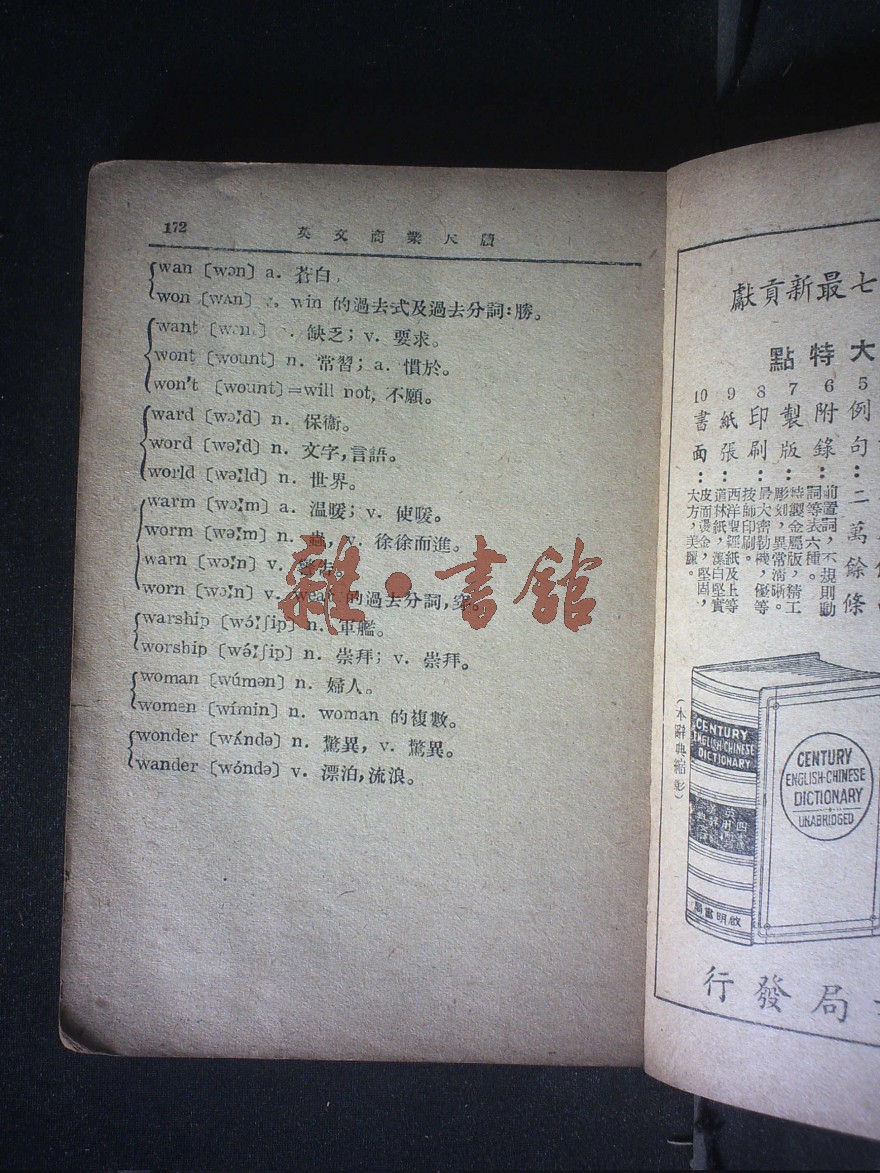 172
英文商業尺牘
wan〔wɔn〕a. 蒼白.
won〔wʌn〕 win 的過去式及過去分詞:勝。
want 缺乏; v. 要求。
wont〔wount〕n. 常習; a. 慣於。
won't〔wount〕=will not, 不願。
ward〔wɔːd〕n. 保衞。
word〔wəːd〕n. 文字,言語。
world〔wəːld〕n. 世界。
warm〔wɔːm〕a. 溫暖; v. 使暖。
worm〔wəːm〕n. 蟲, v. 徐徐而進。
warn〔wɔːn〕v. 警告。
worn〔wɔːn〕v. wear 的過去分詞,穿。
warship〔wɔ́ːʃip〕n. 軍艦。
worship〔wə́ːʃip〕n. 崇拜; v. 崇拜。
woman〔wúmən〕n. 婦人。
women〔wímin〕n. woman 的複數。
wonder〔wʌ́ndə〕n. 驚異, v. 驚異。
wander〔wɔ́ndə〕v. 漂泊,流浪。
雜·書館
七最新貢獻
大特點
5 例句:二萬餘條
6 附錄:前置詞,不規則動詞等表六種。
7 製版:特製金屬版,精工彫刻,異常清晰。
8 印刷:最大密勒機,優等技師印刷。
9 紙張:西洋聖經紙及上等道林紙,潔白堅實
10 書面:皮面燙金,堅固,大方,美麗。
(本辭典縮影)
CENTURY
ENGLISH-CHINESE
DICTIONARY
啟明書局
CENTURY
ENGLISH-CHINESE
DICTIONARY
UNABRIDGED
局發行